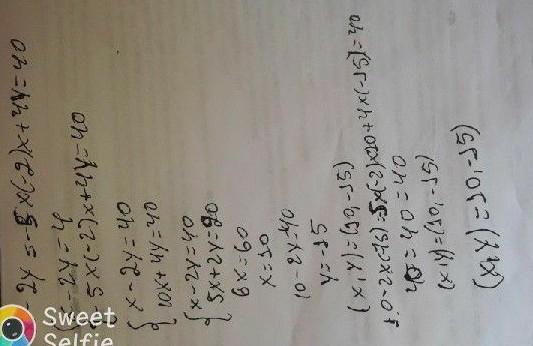 - 2y = - 5x(-2)x + 2y = 40
5x(-2)x + 2y = 40
{ x - 2y = 40
10x + 4y = 40
{ x - 2y = 40
5x + 2y = 20
6x = 60
x = 10
10 - 2y = 40
y = -15
(x, y) = (10, -15)
10 - 2x(-15) =
= 40
40 = 40
(x, y) = (10, -15)
(x, y) = (10, -15)
Sweet
Selfie